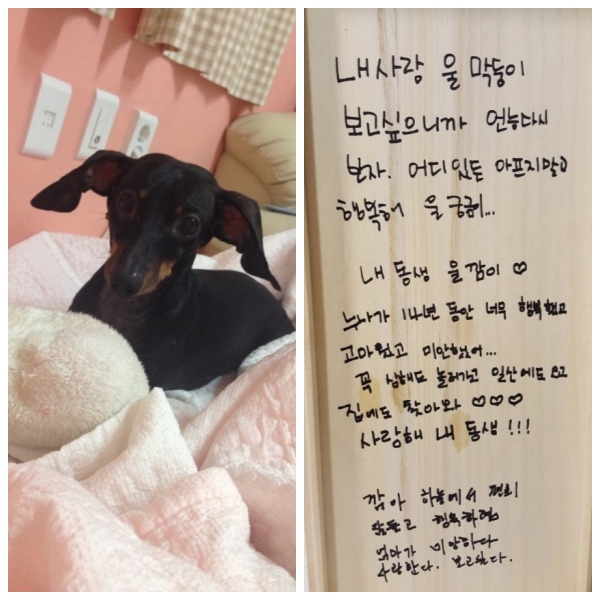 내사랑 울 막둥이
보고싶으니까 언능다시
보자. 어디있든 아프지말고
행복해 울 궁금히...
내 동생 울깜이 ♡
누나가 14년 동안 너무 행복했고
고마웠고 미안했어...
꼭 상해도 놀러가고 일산에도 오고
집에도 찾아와 ♡♡♡
사랑해 내 동생 !!!
깜아 하늘에서 편히
잠들고 행복하렴
엄마가 미안하다
사랑한다. 보고싶다.